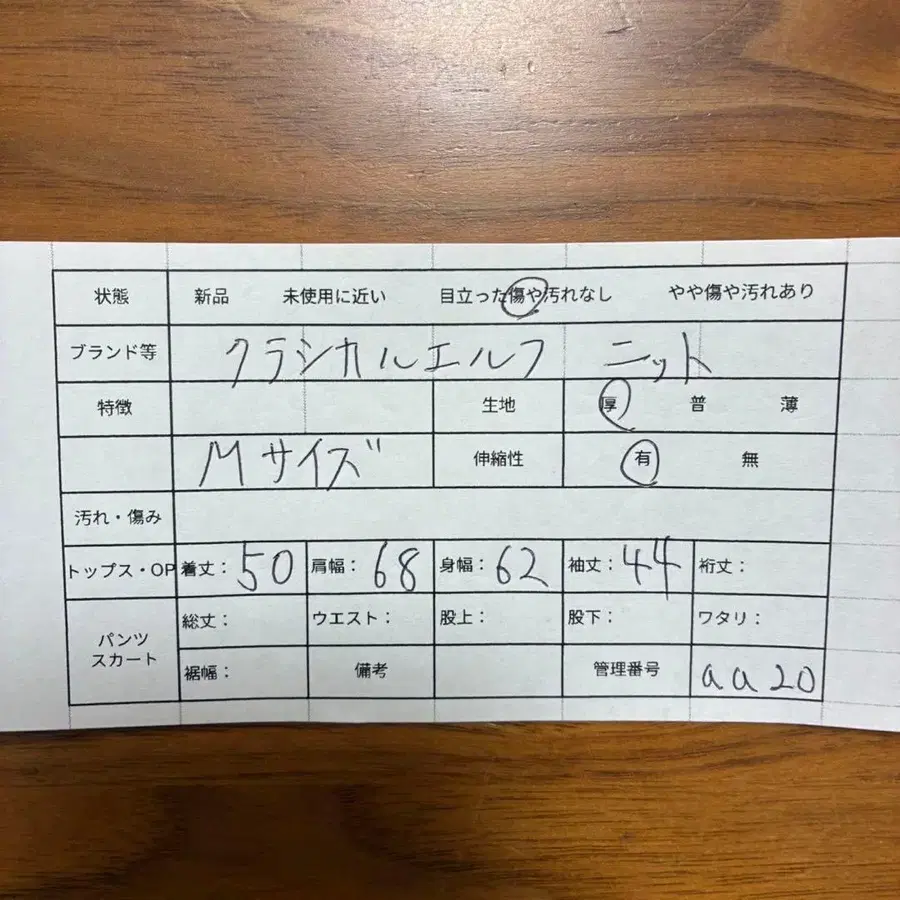 状態 新品 未使用に近い 目立った傷や汚れなし やや傷や汚れあり
ブランド等 クラシカルエルフ ニット
特徴 生地 厚 普 薄
Mサイズ 伸縮性 有 無
汚れ・傷み
トップス・OP 着丈：50 肩幅：68 身幅：62 袖丈：44 裄丈：
パンツ スカート 総丈： ウエスト： 股上： 股下： ワタリ：
裾幅： 備考 管理番号 aa20